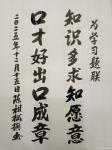 为学习题联
知识多求知愿意
口才好出口成章
二〇二五年十二月十五日陈祖松撰